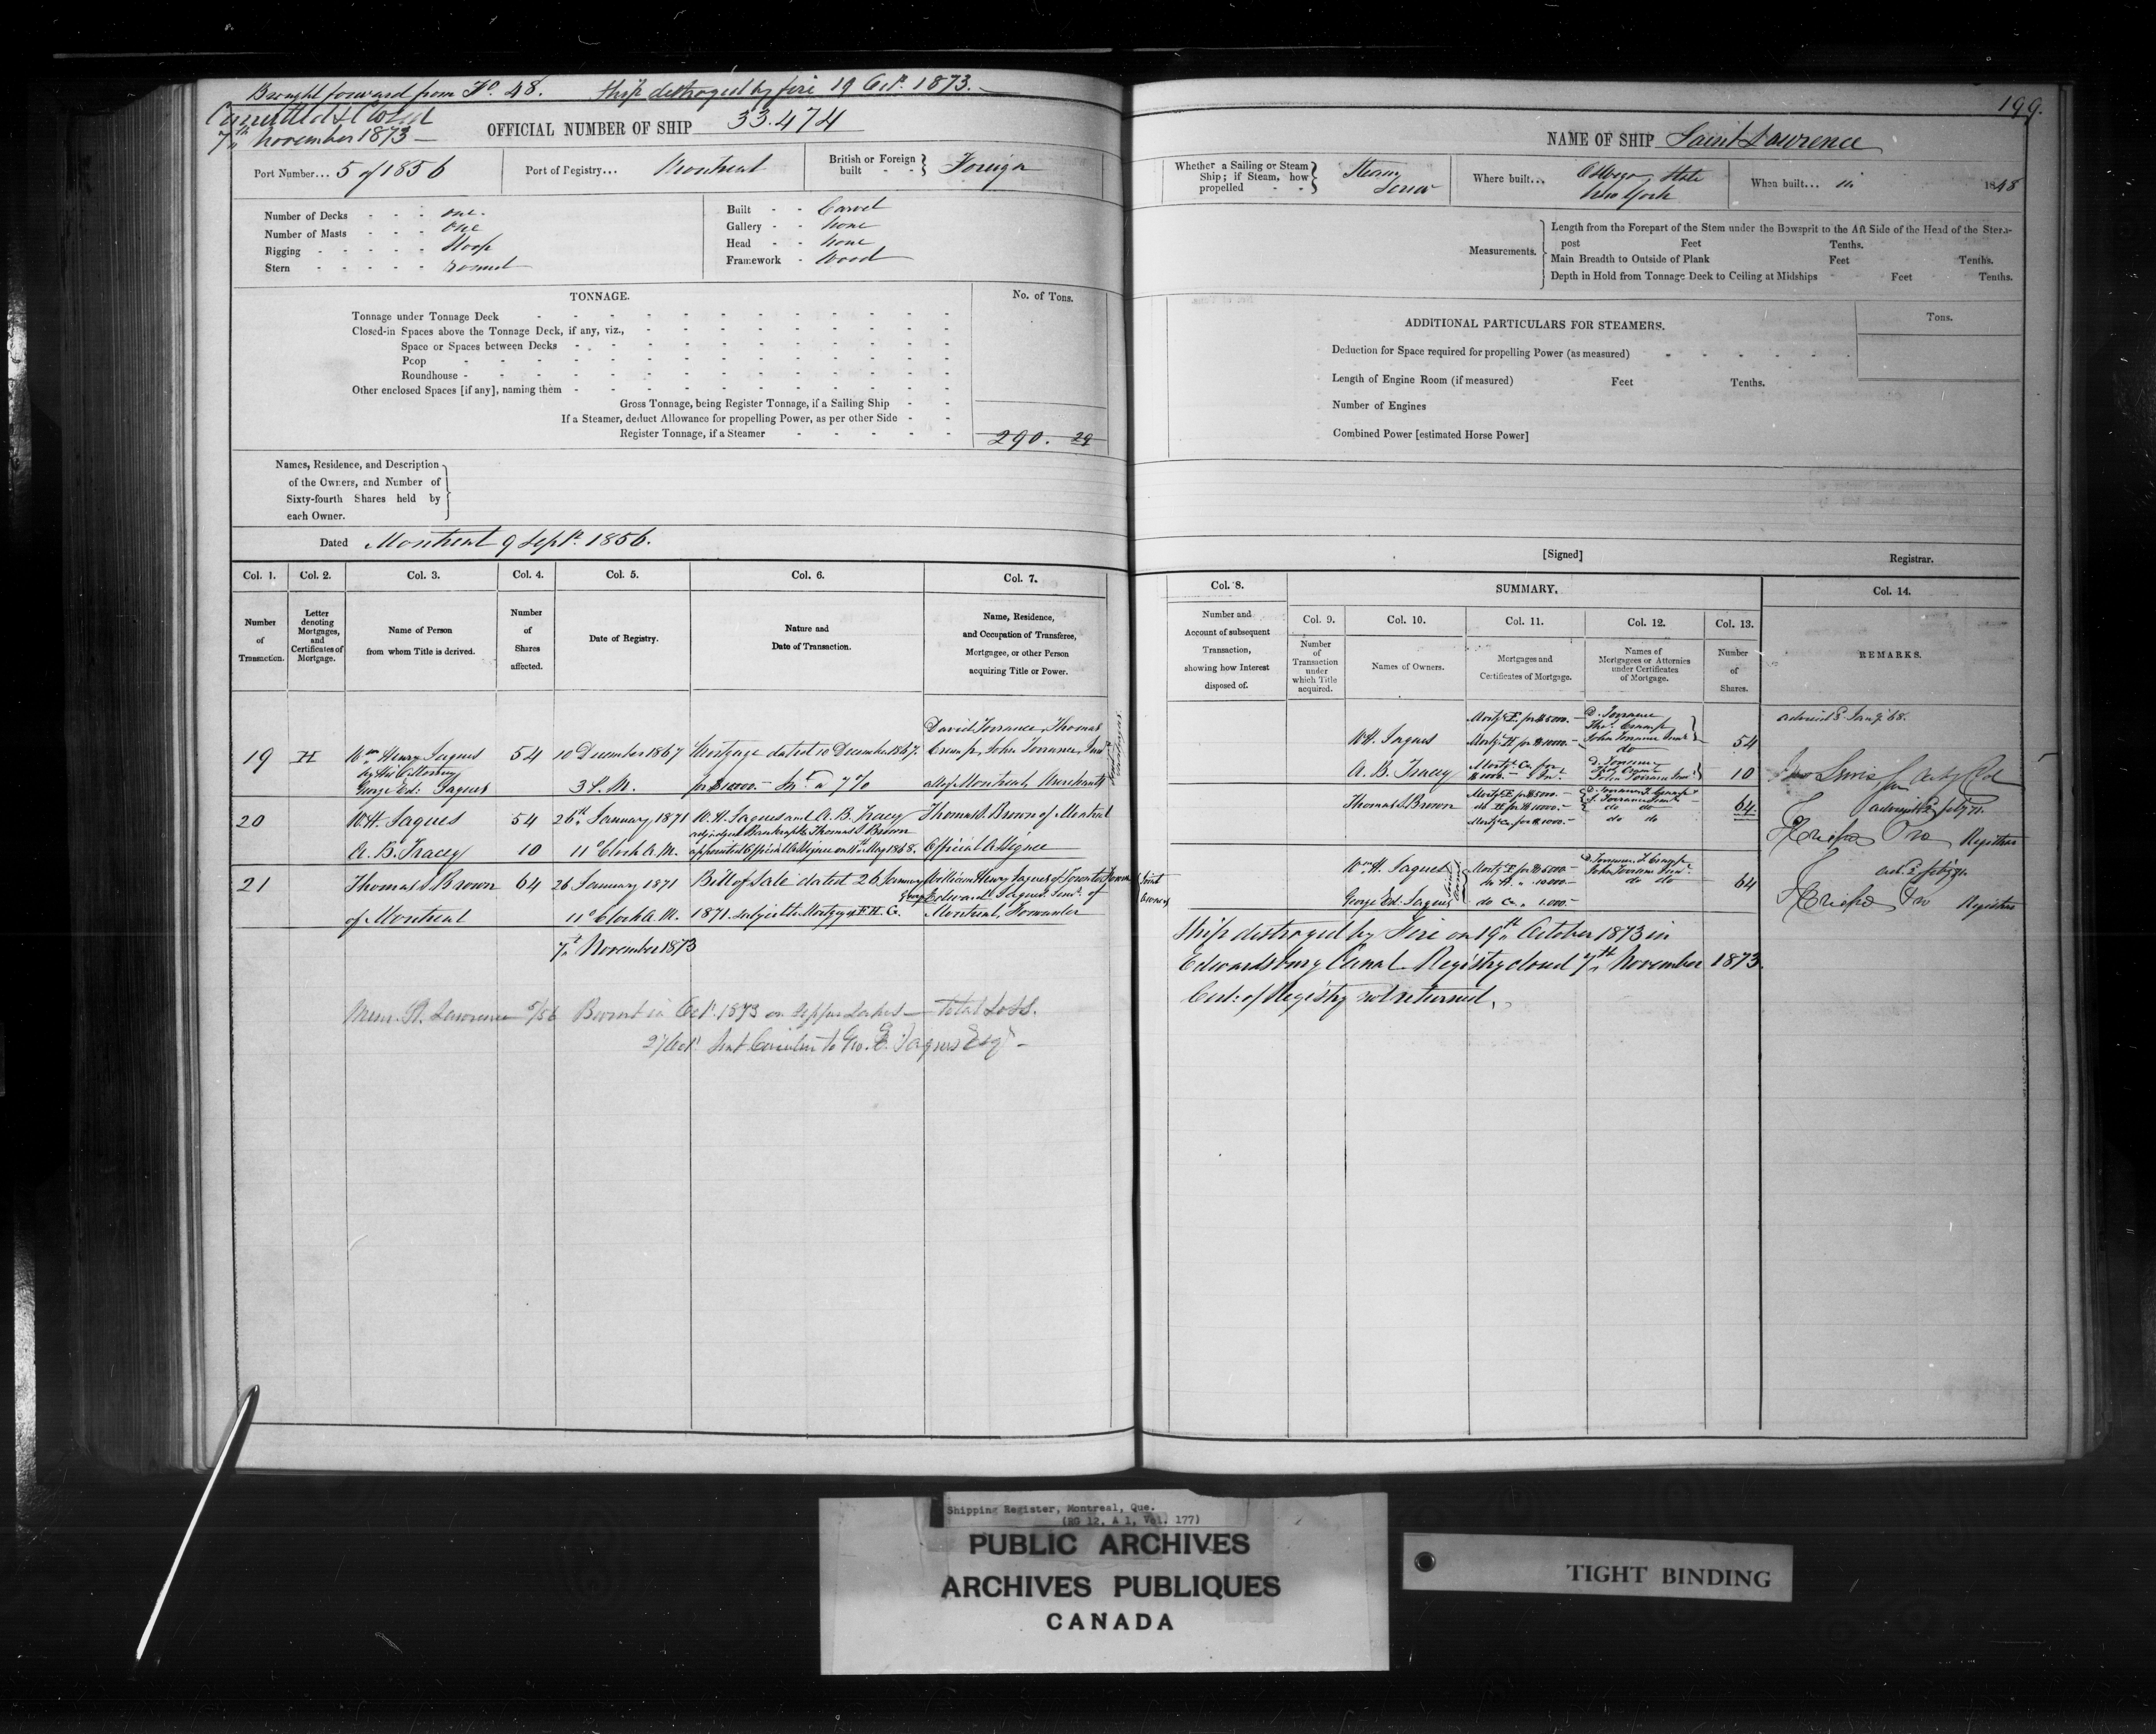 Brought forward from Fo. 48. Ship destroyed by fire 19 Octr. 1873.
Cancelled & Closed
7th November 1873
OFFICIAL NUMBER OF SHIP 33.474
Port Number... 5 of 1856
Port of Registry... Montreal
British or Foreign built - - Foreign
Number of Decks - - - one.
Number of Masts - - - one
Rigging - - - - - Sloop
Stern - - - - - round
Built - - Carvel
Gallery - - none
Head - - none
Framework - Wood
TONNAGE.
No. of Tons.
Tonnage under Tonnage Deck
Closed-in Spaces above the Tonnage Deck, if any, viz.,
Space or Spaces between Decks
Poop
Roundhouse
Other enclosed Spaces [if any], naming them
Gross Tonnage, being Register Tonnage, if a Sailing Ship
If a Steamer, deduct Allowance for propelling Power, as per other Side
Register Tonnage, if a Steamer 290. 29
Names, Residence, and Description
of the Owners, and Number of
Sixty-fourth Shares held by
each Owner.
Dated Montreal 9 Septr. 1856.
Col. 1. Col. 2. Col. 3. Col. 4. Col. 5. Col. 6. Col. 7.
Number of Transaction.
Letter denoting Mortgages, and Certificates of Mortgage.
Name of Person from whom Title is derived.
Number of Shares affected.
Date of Registry.
Nature and Date of Transaction.
Name, Residence, and Occupation of Transferee, Mortgagee, or other Person acquiring Title or Power.
David Torrance, Thomas
19 H Wm Henry Jaques 54 10 December 1867 Mortgage dated 10 December 1867. Cramp, John Torrance, Junr
by his Attorney
George Ed. Jaques 3 P.M. for $10000.- Int a 7 % all of Montreal, Merchants
Joint Mortgagees
20 W.H. Jaques 54 26th January 1871 W.H. Jaques and A.B. Tracey Thomas S. Brown of Montreal
adjudged Bankrupts Thomas S Brown
A.B. Tracey 10 11 o'Clock A.M. appointed Official Assignee on 11th May 1868. Official Assignee
21 Thomas S Brown 64 26 January 1871 Bill of Sale dated 26 January William Henry Jaques of Toronto
George Edward Jaques Junr. of
of Montreal 11 o'Clock A.M. 1871. subject to Mortgages F. H. G. Montreal, Forwarder
Joint Owners
7th November 1873
Mem. St. Lawrence 5/56 Burnt in Octr. 1873 on Upper Lakes - total Loss.
27 Octr. Sent Circular to Geo. E. Jaques Esqr -
199.
NAME OF SHIP Saint Lawrence
Whether a Sailing or Steam Ship; if Steam, how propelled - - Steam Screw
Where built... Oswego, State New York
When built... in 1848
Measurements.
Length from the Forepart of the Stem under the Bowsprit to the Aft Side of the Head of the Stern-
post Feet Tenths.
Main Breadth to Outside of Plank Feet Tenths.
Depth in Hold from Tonnage Deck to Ceiling at Midships Feet Tenths.
ADDITIONAL PARTICULARS FOR STEAMERS.
Tons.
Deduction for Space required for propelling Power (as measured)
Length of Engine Room (if measured) Feet Tenths.
Number of Engines
Combined Power [estimated Horse Power]
[Signed] Registrar.
Col. 8. SUMMARY. Col. 14.
Number and Account of subsequent Transaction, showing how Interest disposed of.
Col. 9. Col. 10. Col. 11. Col. 12. Col. 13.
Number of Transaction under which Title acquired.
Names of Owners.
Mortgages and Certificates of Mortgage.
Names of Mortgagees or Attornies under Certificates of Mortgage.
Number of Shares.
REMARKS.
W.H. Jaques Mortg. F. for $5000.- D. Torrance Thos. Cramp 54
Mortg. H for $10000.- John Torrance Junr do
A. B. Tracey Mortg. Ga. for $1000.- D. Torrance Thos Cramp John Torrance Junr. 10
Thomas S Brown Mortg. F. for $5000.- D. Torrance T. Cramp J. Torrance Junr 64
do H for $10000.- do do
Mortg Ga. for $1000.- do do
Wm H. Jaques Mortg. F for $5000.- D. Torrance T. Cramp John Torrance Junr. 64
do H. " 10000.- do do
George Ed. Jaques do Ga. " 1.000.-
Registrar
Registrar
Ship destroyed by Fire on 19th October 1873 in
Edwardsburg Canal. Registry closed 7th November 1873.
Cert: of Registry not returned.
Shipping Register, Montreal, Que.
(RG 12, A 1, Vol. 177)
PUBLIC ARCHIVES
ARCHIVES PUBLIQUES
CANADA
TIGHT BINDING